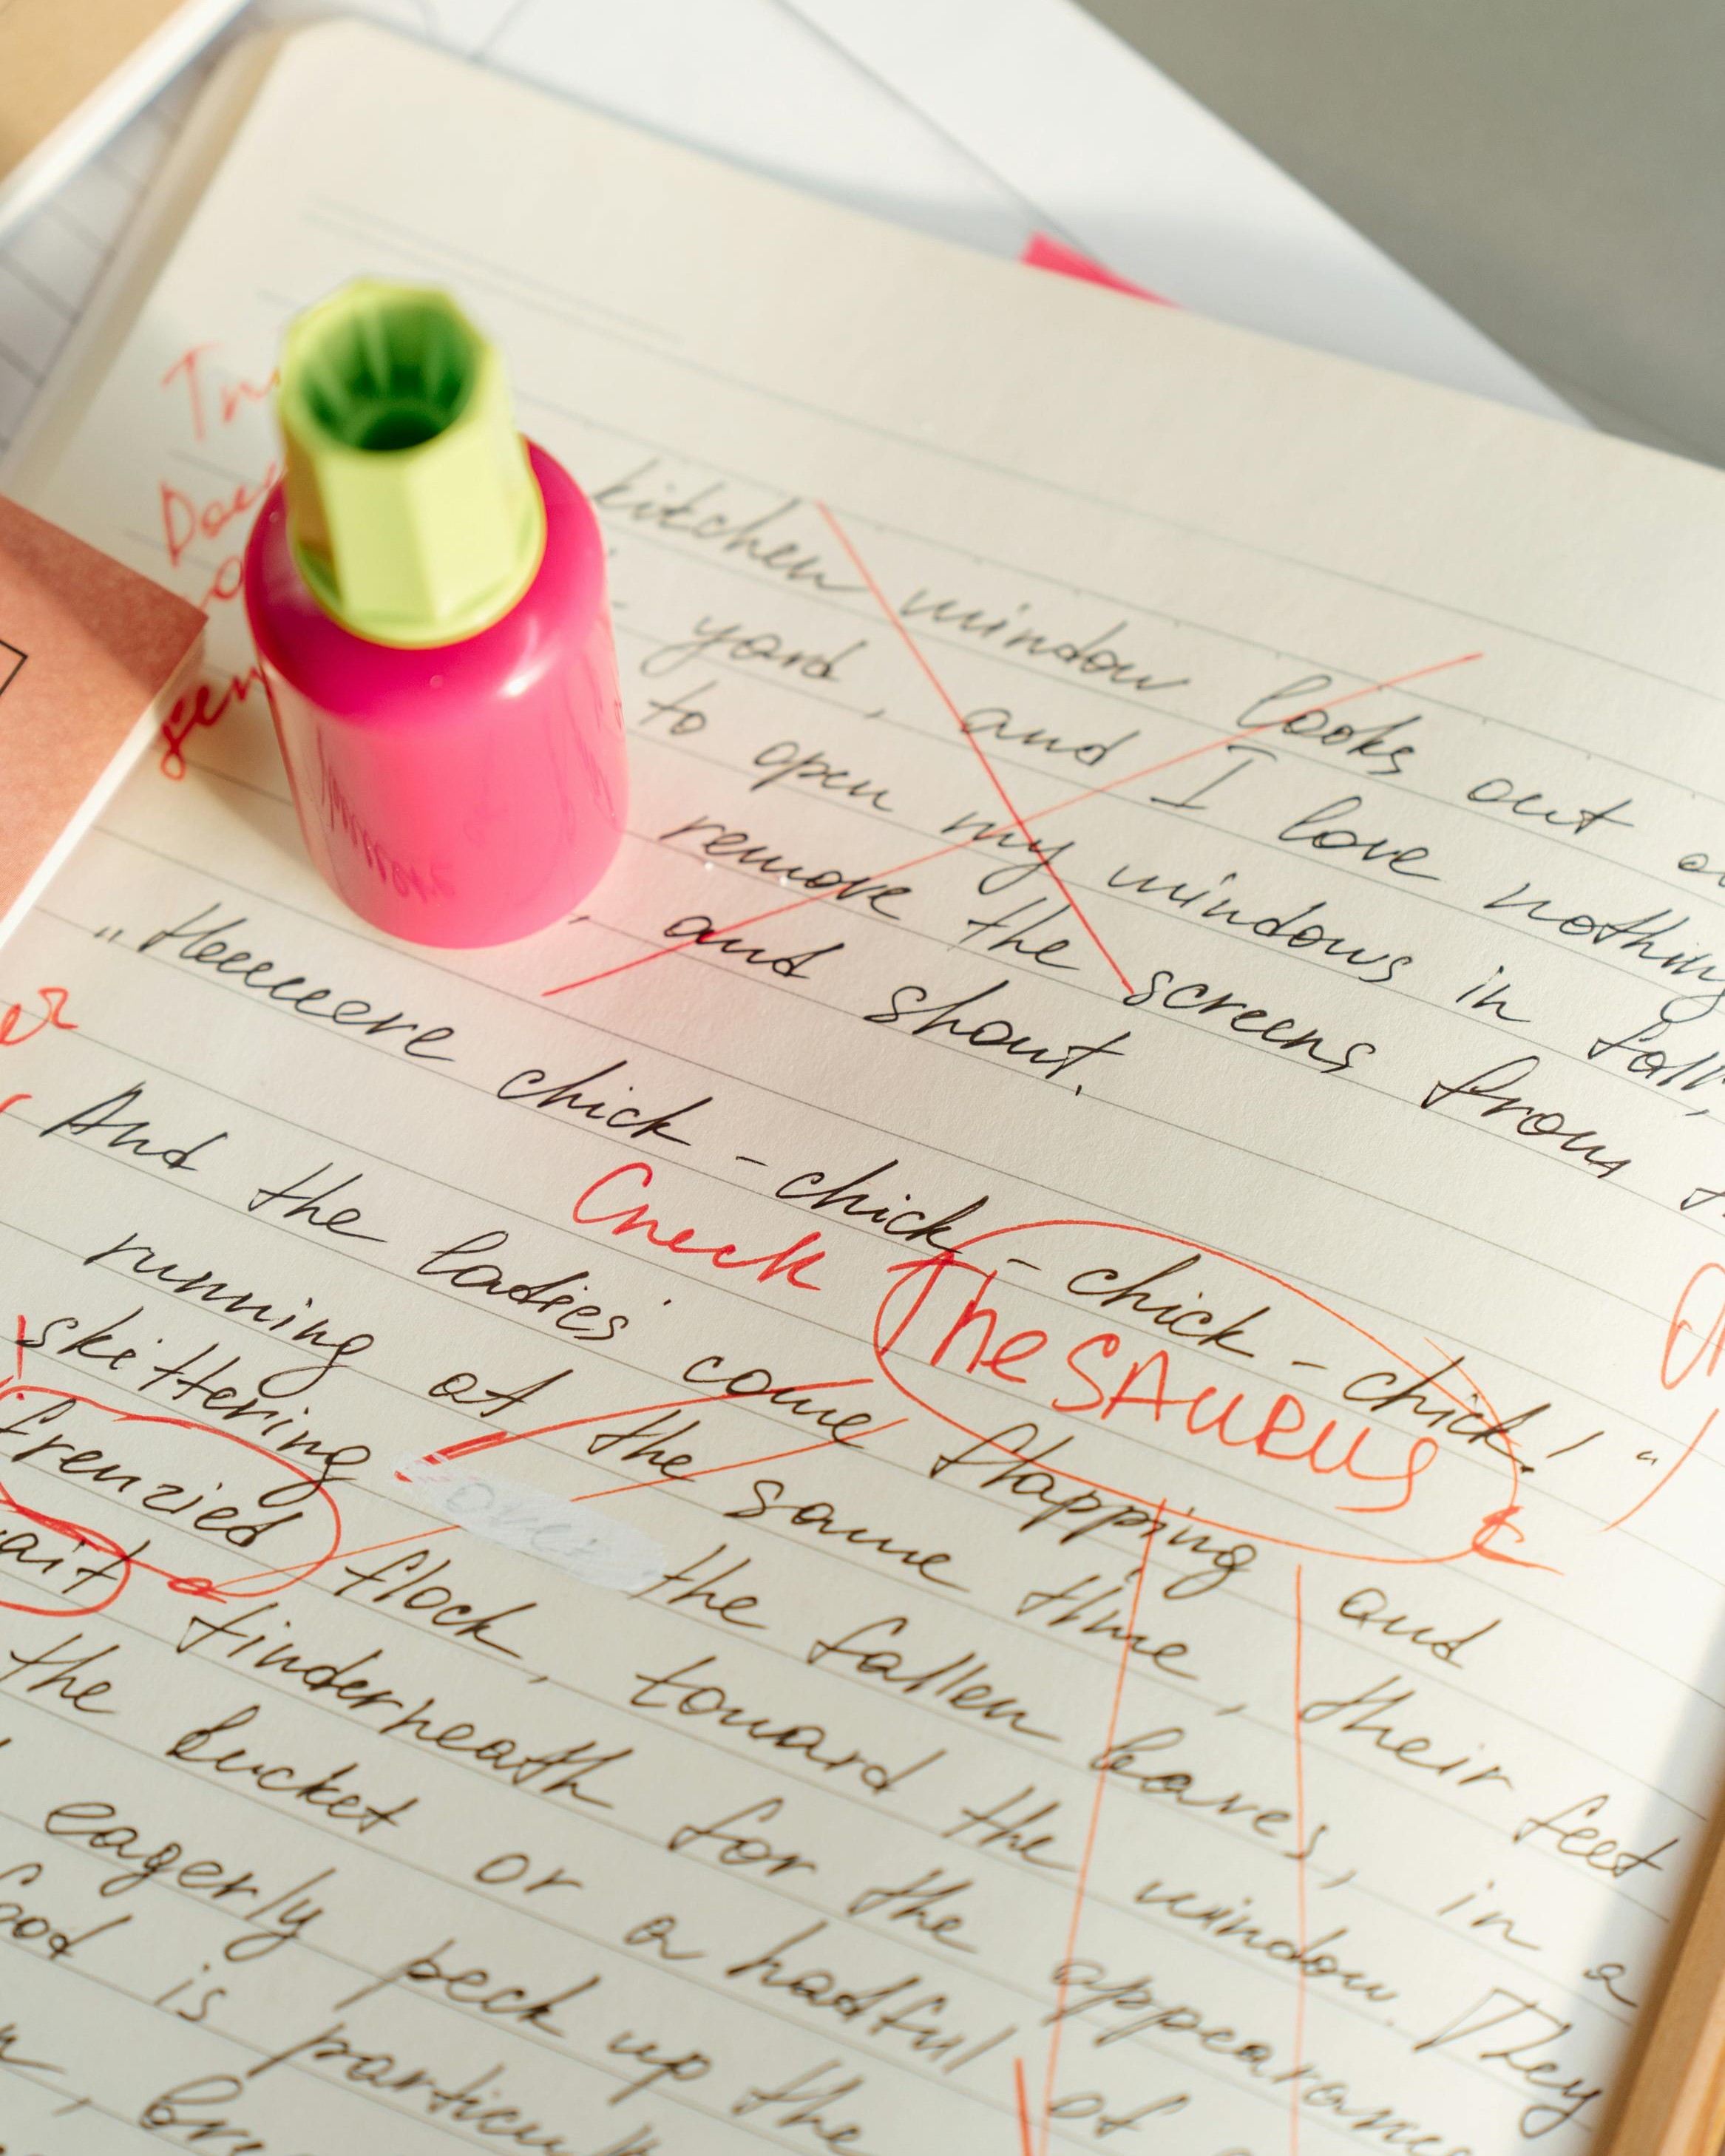 kitchen window looks out
yard, and I love nothing
to open my windows in fall,
remove the screens from
, and shout.
„Heeeeere chick-chick-chick-chick!“
Check Thesaurus
And the ladies' come flapping and
running at the same time, their feet
skittering over the fallen leaves, in a
frenzied flock, toward the window. They
wait tinderneath for the appearance
the bucket or a hatful of
eagerly peck up the
food is particul